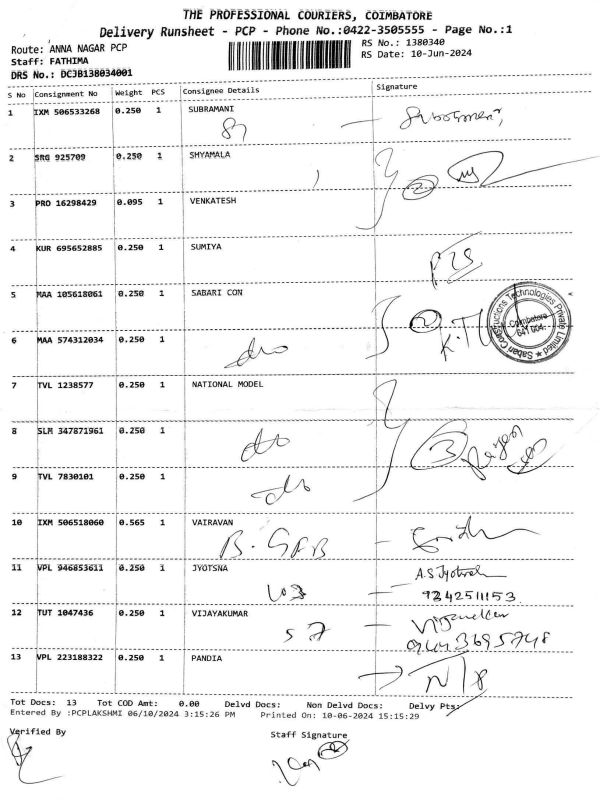 THE PROFESSIONAL COURIERS, COIMBATORE
Delivery Runsheet - PCP - Phone No.:0422-3505555 - Page No.:1
Route: ANNA NAGAR PCP
Staff: FATHIMA
DRS No.: DCJB138034001
RS No.: 1380340
RS Date: 10-Jun-2024
S No Consignment No Weight PCS Consignee Details Signature
1 IXM 506533268 0.250 1 SUBRAMANI
2 SRG 925709 0.250 1 SHYAMALA
3 PRO 16298429 0.095 1 VENKATESH
4 KUR 695652885 0.250 1 SUMIYA
5 MAA 105618061 0.250 1 SABARI CON
Coimbatore
641 004.
6 MAA 574312034 0.250 1
do
7 TVL 1238577 0.250 1 NATIONAL MODEL
8 SLM 347871961 0.250 1
do
9 TVL 7830101 0.250 1
do
10 IXM 506518060 0.565 1 VAIRAVAN
11 VPL 946853611 0.250 1 JYOTSNA
103
9242511153
12 TUT 1047436 0.250 1 VIJAYAKUMAR
57
9443695748
13 VPL 223188322 0.250 1 PANDIA
Tot Docs: 13 Tot COD Amt: 0.00 Delvd Docs: Non Delvd Docs: Delvy Pts:
Entered By :PCPLAKSHMI 06/10/2024 3:15:26 PM Printed On: 10-06-2024 15:15:29
Verified By Staff Signature